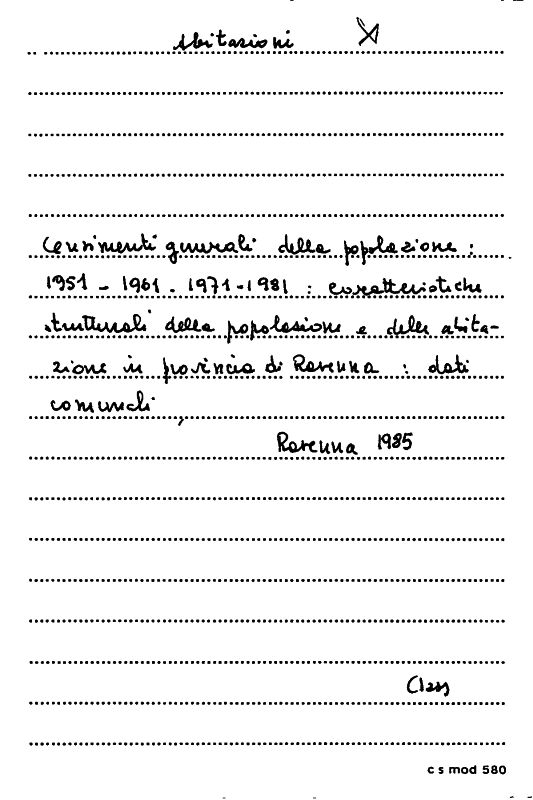 Abitazioni
Censimenti generali della popolazione :
1951 - 1961 - 1971 - 1981 : caratteristiche
strutturali della popolazione e delle abita-
zione in provincia di Ravenna : dati
comunali,
Ravenna 1985
Class
c s mod 580